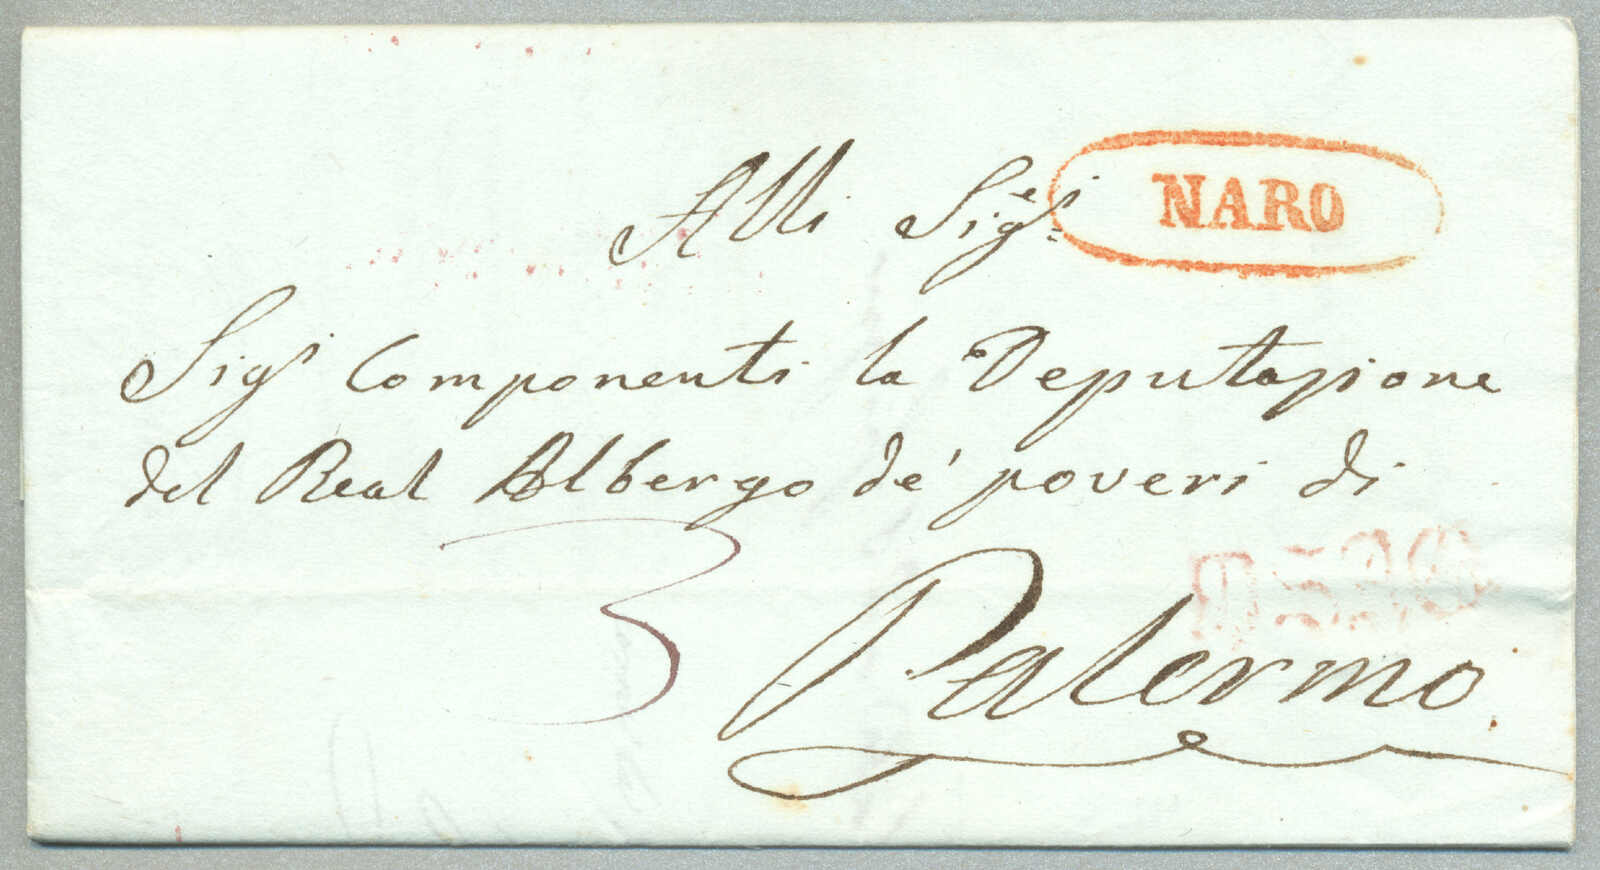 Alli Sig.ri
NARO
Sig.ri Componenti la Deputazione
del Real Albergo de' poveri di
3
Palermo